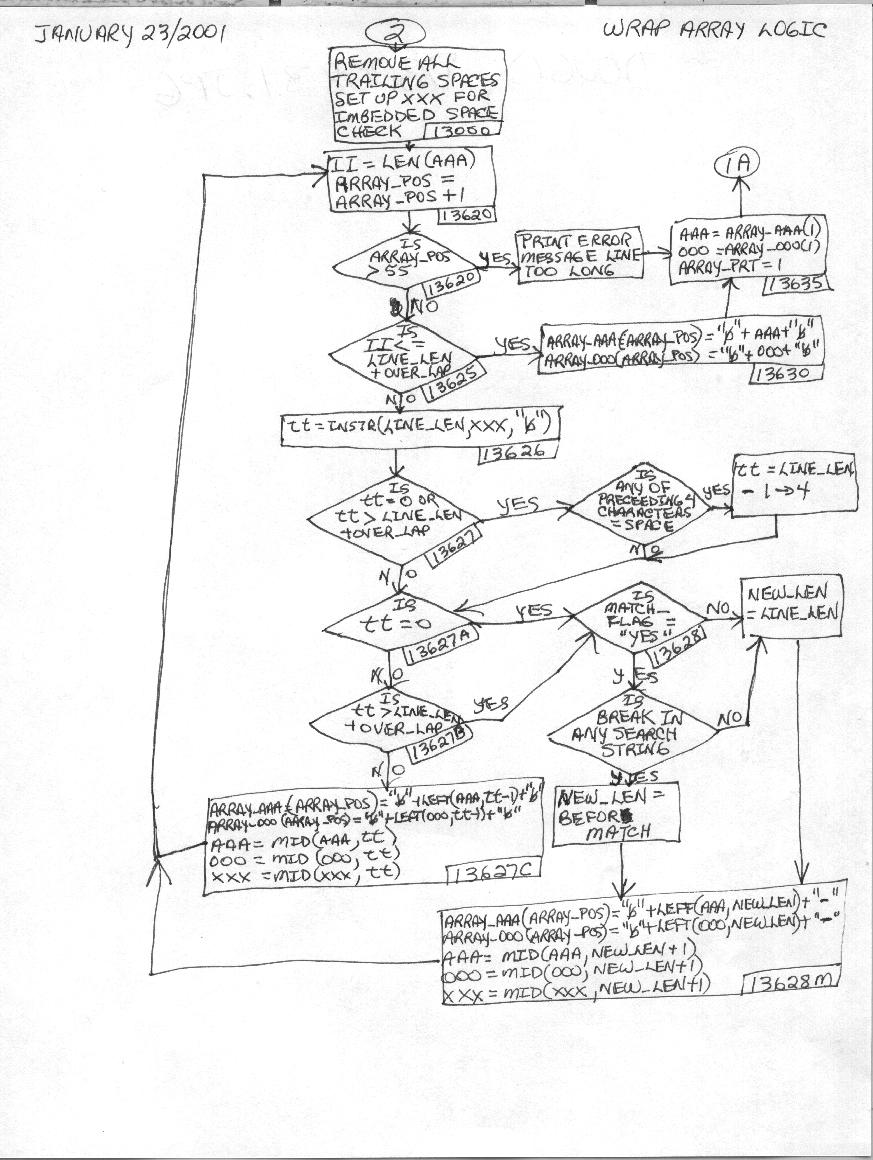 JANUARY 23/2001
2
WRAP ARRAY LOGIC
REMOVE ALL
TRAILING SPACES
SET UP XXX FOR
IMBEDDED SPACE
CHECK 13050
II = LEN(AAA)
ARRAY_POS =
ARRAY_POS +1
13620
1A
IS
ARRAY_POS
> 55
13620
YES
PRINT ERROR
MESSAGE LINE
TOO LONG
AAA = ARRAY_AAA(1)
OOO = ARRAY_OOO(1)
ARRAY_PRT = 1
13635
NO
IS
II <=
LINE_LEN
+OVER_LAP
13625
YES
ARRAY_AAA(ARRAY_POS) = "b̸" + AAA + "b̸"
ARRAY_OOO(ARRAY_POS) = "b̸" + OOO + "b̸"
13630
NO
tt = INSTR(LINE_LEN, XXX, "b̸")
13626
IS
tt=0 OR
tt > LINE_LEN
+OVER_LAP
13627
YES
IS
ANY OF
PRECEEDING 4
CHARACTERS
= SPACE
YES
tt = LINE_LEN
- 1→4
NO
NO
IS
tt = 0
13627A
YES
IS
MATCH_
FLAG =
"YES"
13628
NO
NEW_LEN
= LINE_LEN
NO
YES
IS
tt > LINE_LEN
+OVER_LAP
13627B
YES
IS
BREAK IN
ANY SEARCH
STRING
NO
NO
YES
ARRAY_AAA(ARRAY_POS) = "b̸" + LEFT(AAA, tt-1) + "b̸"
ARRAY_OOO(ARRAY_POS) = "b̸" + LEFT(OOO, tt-1) + "b̸"
AAA = MID(AAA, tt)
OOO = MID(OOO, tt)
XXX = MID(XXX, tt)
13627C
NEW_LEN =
BEFORE
MATCH
ARRAY_AAA(ARRAY_POS) = "b̸" + LEFT(AAA, NEW_LEN) + "-"
ARRAY_OOO(ARRAY_POS) = "b̸" + LEFT(OOO, NEW_LEN) + "-"
AAA = MID(AAA, NEW_LEN+1)
OOO = MID(OOO, NEW_LEN+1)
XXX = MID(XXX, NEW_LEN+1)
13628M